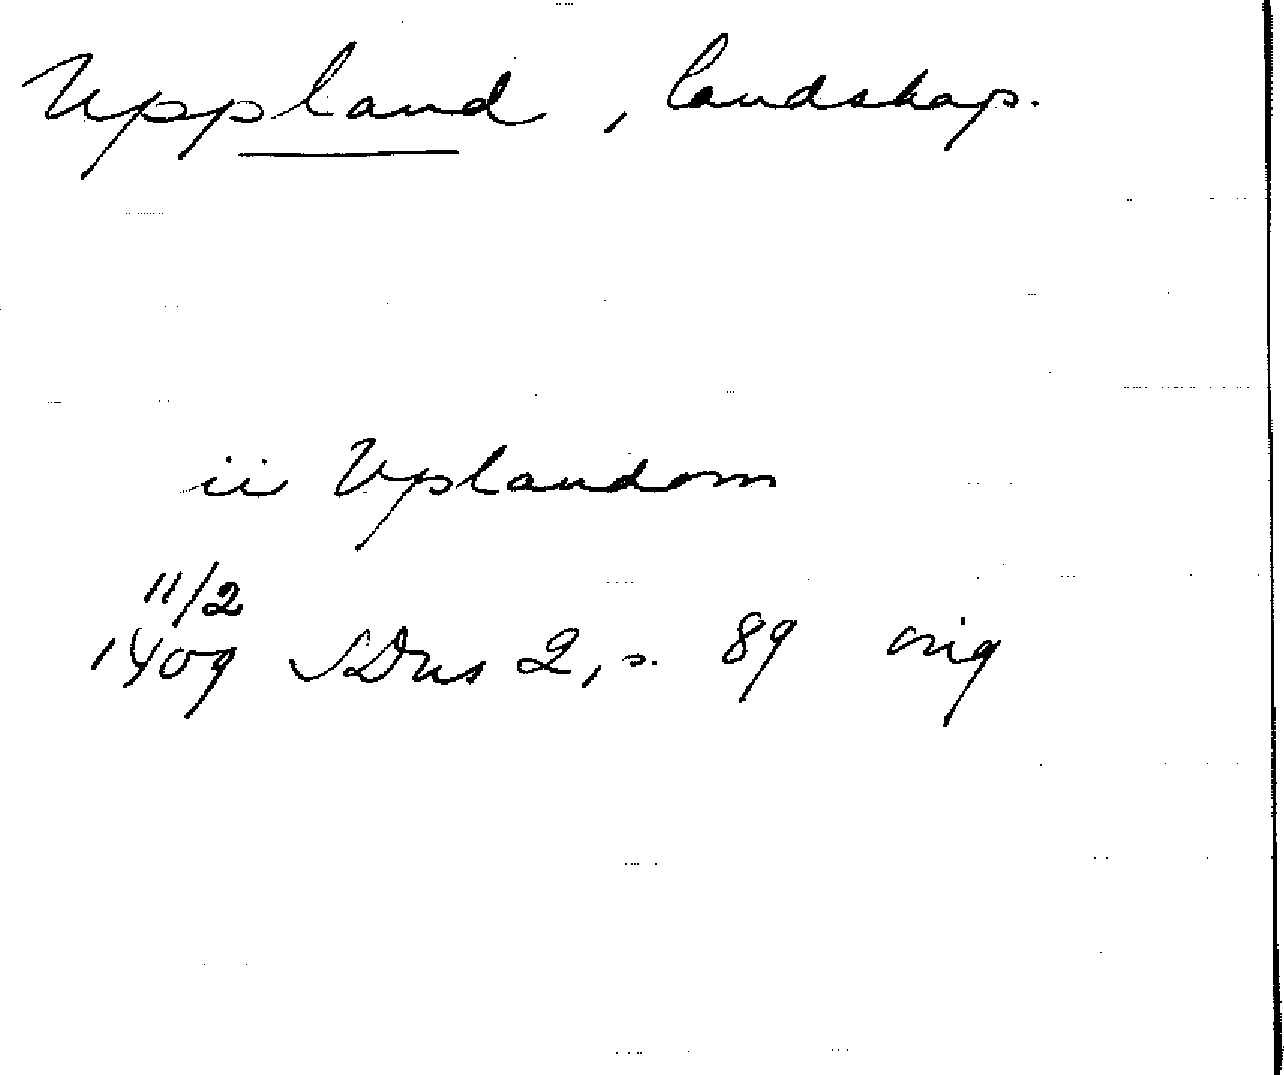 Uppland, landskap.
ii Vplandom
11/2
1409 SDns 2, s. 89 orig